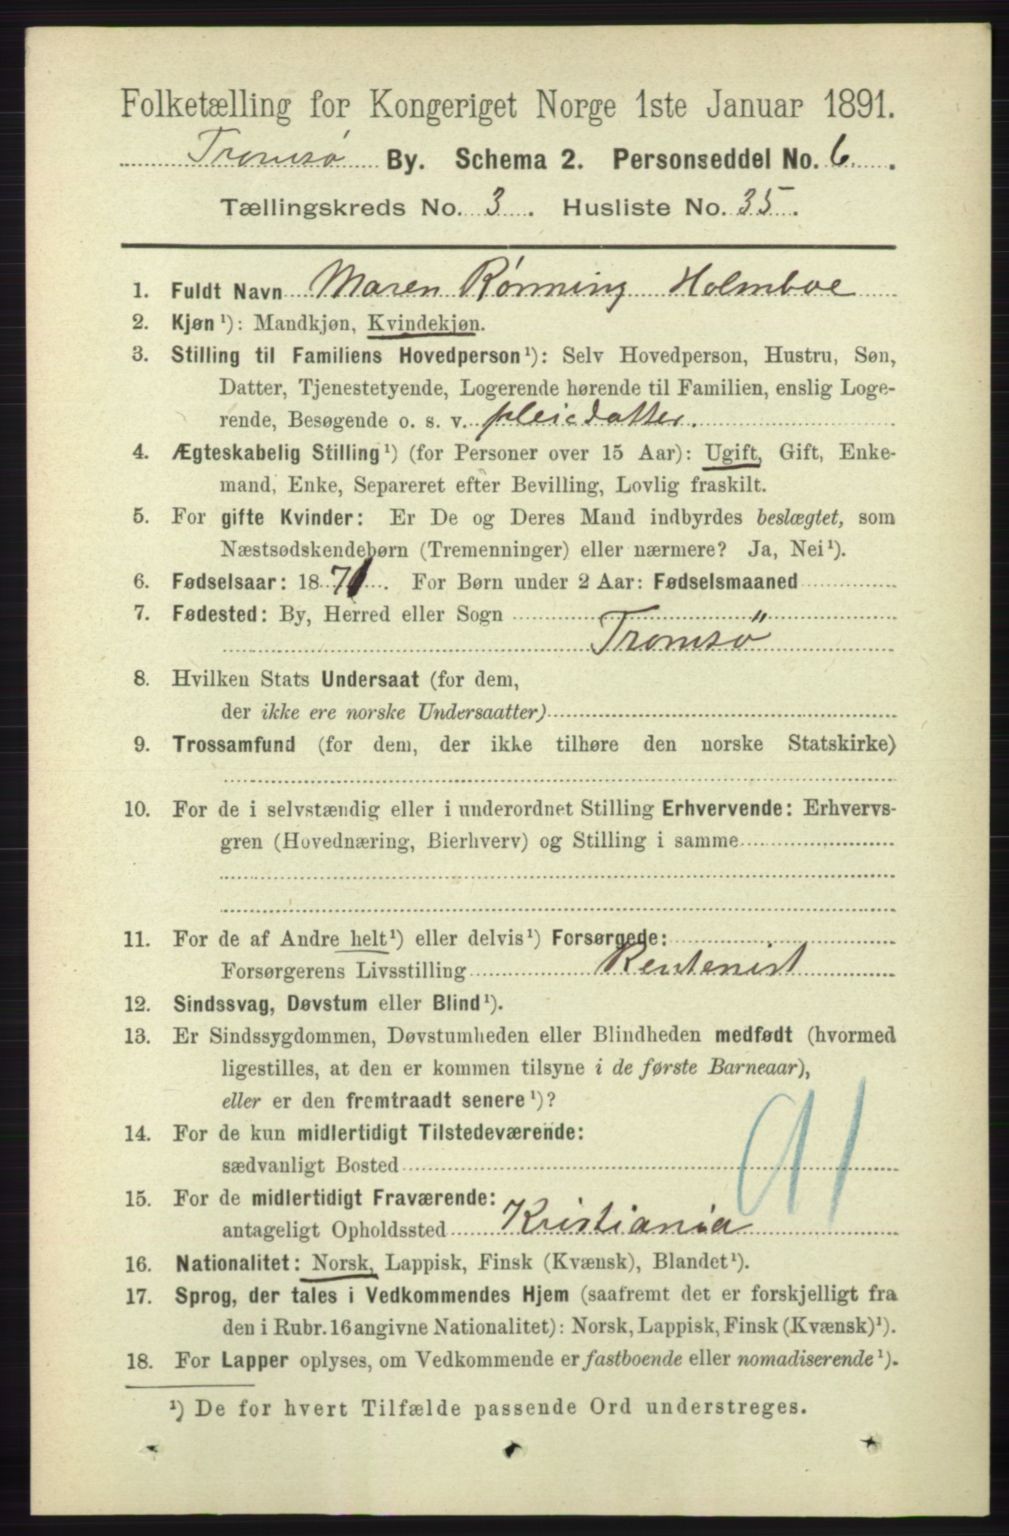 Folketælling for Kongeriget Norge 1ste Januar 1891.
Tromsø By. Schema 2. Personseddel No. 6.
Tællingskreds No. 3. Husliste No. 35.
1. Fuldt Navn Maren Rønning Holmboe
2. Kjøn ¹): Mandkjøn, Kvindekjøn.
3. Stilling til Familiens Hovedperson ¹): Selv Hovedperson, Hustru, Søn,
Datter, Tjenestetyende, Logerende hørende til Familien, enslig Loge-
rende, Besøgende o. s. v. pleiedatter.
4. Ægteskabelig Stilling ¹) (for Personer over 15 Aar): Ugift, Gift, Enke-
mand, Enke, Separeret efter Bevilling, Lovlig fraskilt.
5. For gifte Kvinder: Er De og Deres Mand indbyrdes beslægtet, som
Næstsødskendebørn (Tremenninger) eller nærmere? Ja, Nei ¹).
6. Fødselsaar: 1871. For Børn under 2 Aar: Fødselsmaaned
7. Fødested: By, Herred eller Sogn
Tromsö
8. Hvilken Stats Undersaat (for dem,
der ikke ere norske Undersaatter)
9. Trossamfund (for dem, der ikke tilhøre den norske Statskirke)
10. For de i selvstændig eller i underordnet Stilling Erhvervende: Erhvervs-
gren (Hovednæring, Bierhverv) og Stilling i samme
11. For de af Andre helt ¹) eller delvis ¹) Forsørgede:
Forsørgerens Livsstilling Rentenist
12. Sindssvag, Døvstum eller Blind ¹).
13. Er Sindssygdommen, Døvstumheden eller Blindheden medfødt (hvormed
ligestilles, at den er kommen tilsyne i de første Barneaar),
eller er den fremtraadt senere ¹)?
14. For de kun midlertidigt Tilstedeværende:
sædvanligt Bosted
91
15. For de midlertidigt Fraværende:
antageligt Opholdssted Kristiania
16. Nationalitet: Norsk, Lappisk, Finsk (Kvænsk), Blandet ¹).
17. Sprog, der tales i Vedkommendes Hjem (saafremt det er forskjelligt fra
den i Rubr. 16 angivne Nationalitet): Norsk, Lappisk, Finsk (Kvænsk) ¹).
18. For Lapper oplyses, om Vedkommende er fastboende eller nomadiserende ¹).
¹) De for hvert Tilfælde passende Ord understreges.